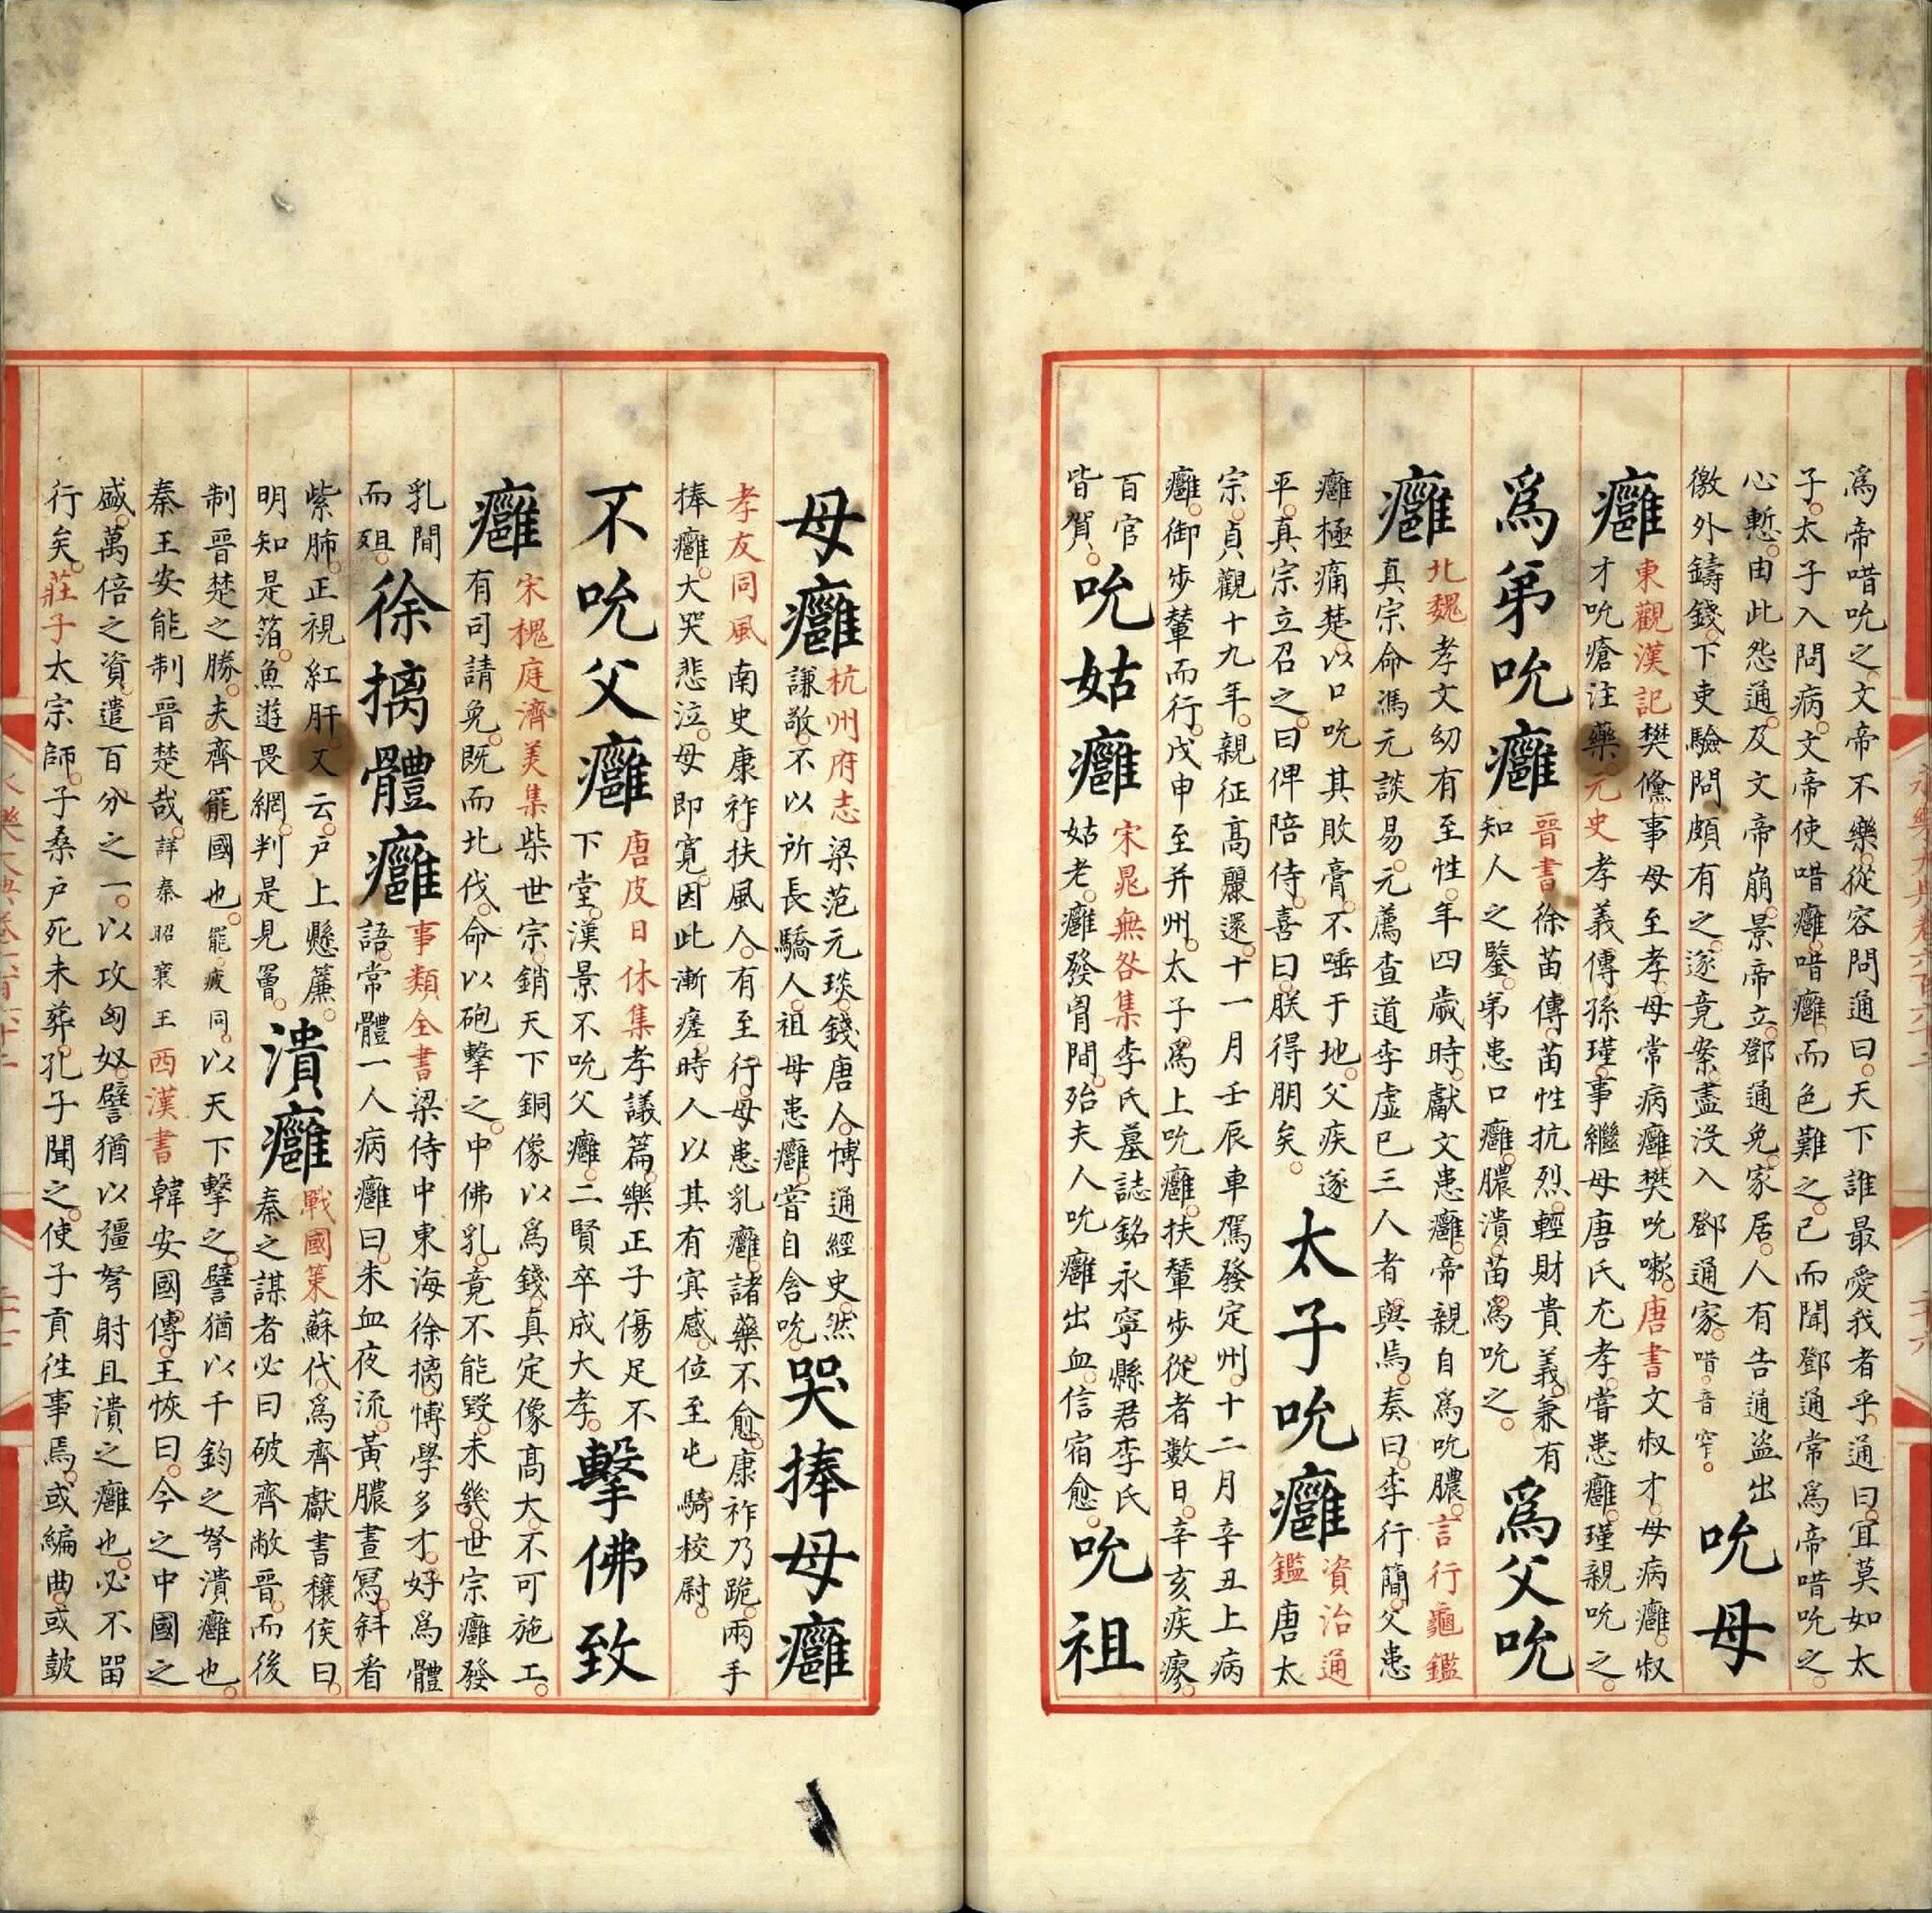 爲帝唶吮之文帝不樂從容問通曰天下誰最愛我者乎通曰宜莫如太
子太子入問病文帝使唶癰唶癰而色難之已而聞鄧通常爲帝唶吮之
心慙由此怨通及文帝崩景帝立鄧通免家居人有告通盜出
徼外鑄錢下吏驗問頗有之遂竟案盡沒入鄧通家唶音窄
吮母
癰
東觀漢記樊儵事母至孝母常病癰樊吮嗽唐書文叔才母病癰叔
才吮瘡注藥元史孝義傳孫瑾事繼母唐氏尤孝嘗患癰瑾親吮之
爲弟吮癰
晉書徐苗傳苗性抗烈輕財貴義兼有
知人之鑒弟患口癰膿潰苗爲吮之
爲父吮
癰
北魏孝文幼有至性年四歲時獻文患癰帝親自爲吮膿言行龜鑑
真宗命馮元談易元薦查道李虛巳三人者與焉奏曰李行簡父患
癰極痛楚以口吮其敗膏不唾于地父疾遂
平真宗立召之曰俾陪侍喜曰朕得朋矣
太子吮癰
資治通
鑑唐太
宗貞觀十九年親征高麗還十一月壬辰車駕發定州十二月辛丑上病
癰御步輦而行戊申至幷州太子爲上吮癰扶輦步從者數日辛亥疾瘳
百官
皆賀
吮姑癰
宋晁無咎集李氏墓誌銘永寧縣君李氏
姑老癰發胷間殆夫人吮癰出血信宿愈
吮祖
母癰
杭州府志梁范元琰錢唐人博通經史然
謙敬不以所長驕人祖母患癰嘗自含吮
哭捧母癰
孝友同風南史康祚扶風人有至行母患乳癰諸藥不愈康祚乃跪兩手
捧癰大哭悲泣母即寬因此漸瘥時人以其有㝠感位至屯騎校尉
不吮父癰
唐皮日休集孝議篇樂正子傷足不
下堂漢景不吮父癰二賢卒成大孝
擊佛致
癰
宋槐庭濟美集柴世宗銷天下銅像以爲錢真定像高大不可施工
有司請免既而北伐命以砲擊之中佛乳竟不能毀未幾世宗癰發
乳間
而殂
徐摛體癰
事類全書梁侍中東海徐摛博學多才好爲體
語常體一人病癰曰朱血夜流黃膿晝冩斜看
紫肺正視紅肝又云戶上懸簾
明知是箔魚遊畏網判是見罾
潰癰
戰國策蘇代爲齊獻書穰侯曰
秦之謀者必曰破齊敝晉而後
制晉楚之勝夫齊罷國也罷疲同以天下擊之譬猶以千鈞之弩潰癰也
秦王安能制晉楚哉詳秦昭襄王西漢書韓安國傳王恢曰今之中國之
盛萬倍之資遣百分之一以攻匈奴譬猶以彊弩射且潰之癰也必不畱
行矣莊子太宗師子桑戶死未葬孔子聞之使子貢往事焉或編曲或鼓